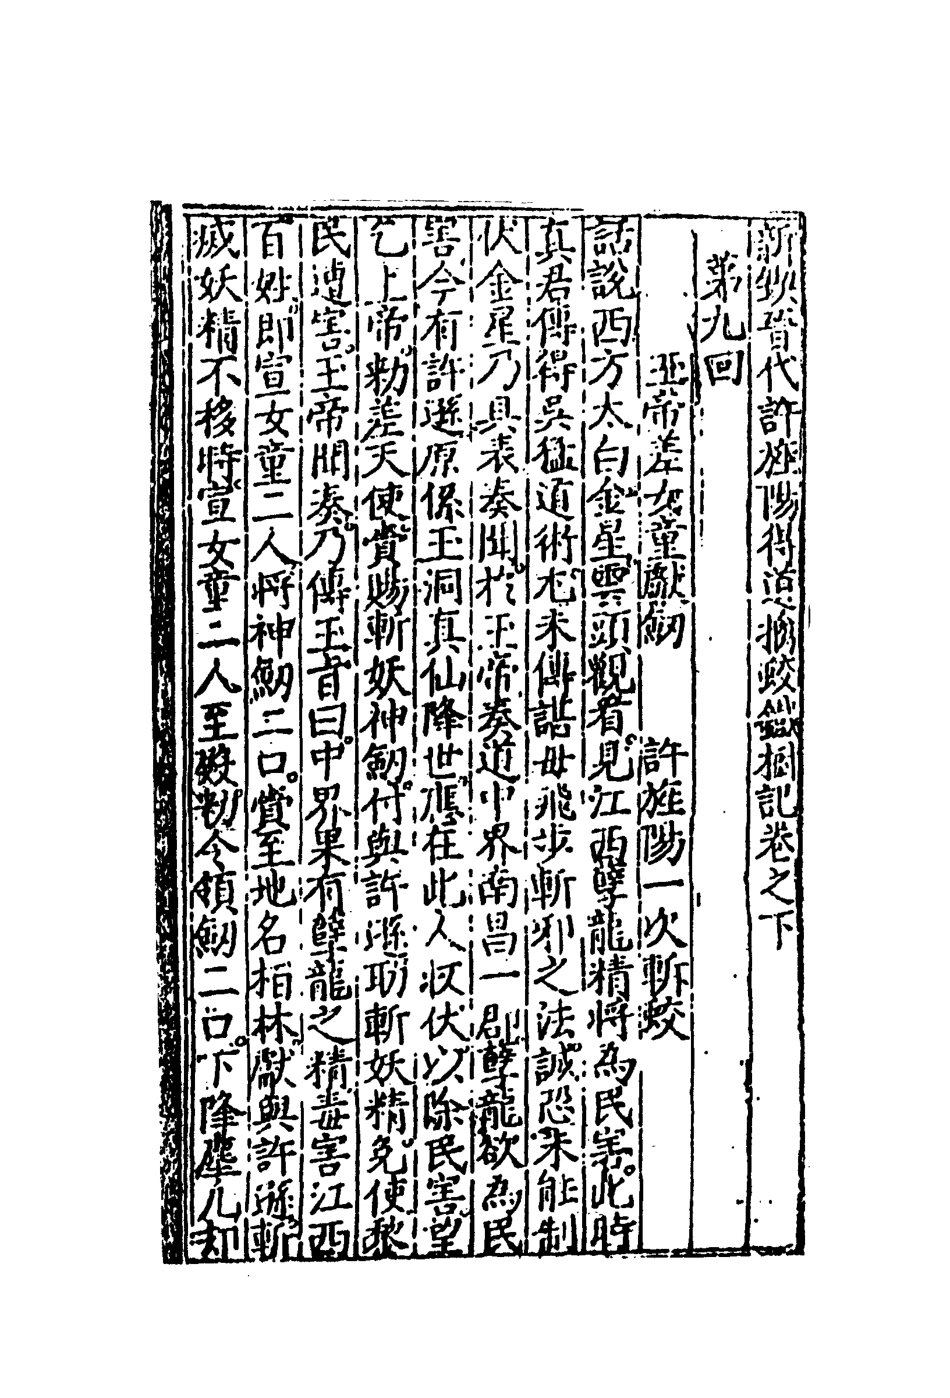 新鍥晉代許旌陽得道擒蛟鐵樹記卷之下
第九回
玉帝差女童獻劒　許旌陽一次斬蛟
話說西方太白金星雲頭觀看見江西孽龍精將為民害。此時
真君傳得吳猛道術尤未傳諶母飛步斬邪之法誠恐未能制
伏金星乃具表奏聞於玉帝奏道中界南昌一郡孽龍欲為民
害今有許遜原係玉洞真仙降世應在此人収伏以除民害望
乞上帝勑差天使賫賜斬妖神劒付與許遜助斬妖精免使黎
民遭害玉帝聞奏乃傳玉旨曰中界果有孽龍之精毒害江西
百姓即宣女童二人將神劒二口。賫至地名栢林獻與許遜斬
滅妖精不移時宣女童二人至殿勑令領劒二口。下降塵凡却